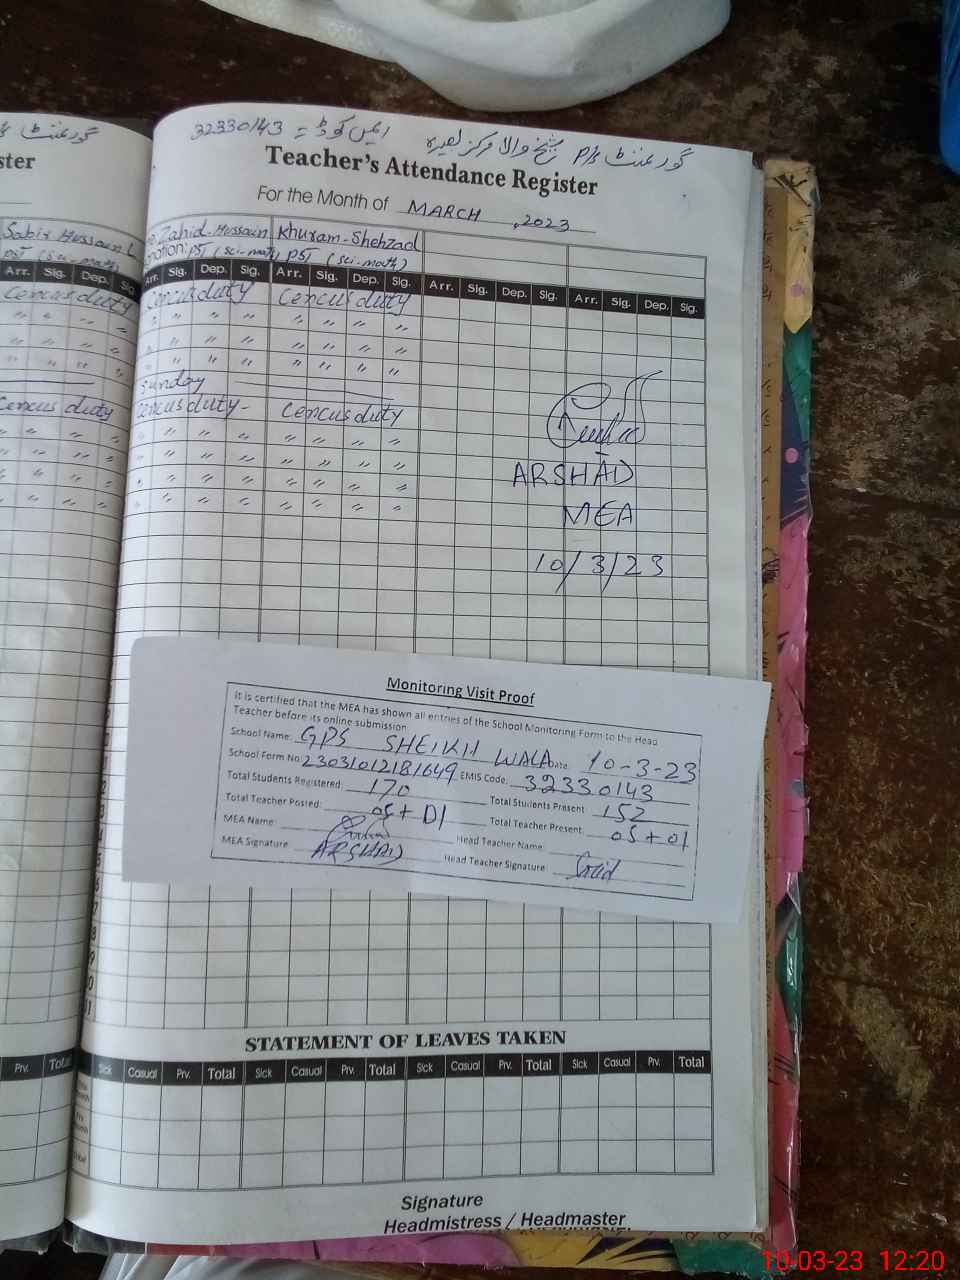 گورنمنٹ
گورنمنٹ P/S شیخ والا مرکز لعیرہ ایمس کوڈ = 32330143
Teacher's Attendance Register
For the Month of MARCH, 2023
Sabir Hussain
Zahid-Hussain Khuram-Shehzad
PST (sci-math) PST (sci-math)
Arr. Sig. Dep. Sig. Arr. Sig. Dep. Sig. Arr. Sig. Dep. Sig. Arr. Sig. Dep. Sig. Arr. Sig. Dep. Sig.
Cencus duty Cencus duty Cencus duty
" " " " " " " " " " " "
" " " " " " " " " " " "
" " " " " " " " " " " "
Sunday
Cencus duty Cencus duty - Cencus duty
" " " " " " " " " " " "
" " " " " " " " " " " "
" " " " " " " " " " " "
" " " " " " " " " " " "
ARSHAD
MEA
10/3/23
Monitoring Visit Proof
It is certified that the MEA has shown all entries of the School Monitoring Form to the Head
Teacher before its online submission
School Name: GPS SHEIKH WALA Date: 10-3-23
School Form No: 23031012181649 EMIS Code: 32330143
Total Students Registered: 170 Total Students Present: 152
Total Teacher Posted: 05+01 Total Teacher Present: 05+01
MEA Name: Head Teacher Name:
MEA Signature: ARSHAD Head Teacher Signature:
STATEMENT OF LEAVES TAKEN
Prv. Total Sick Casual Prv. Total Sick Casual Prv. Total Sick Casual Prv. Total Sick Casual Prv. Total
Signature
Headmistress / Headmaster
10-03-23 12:20